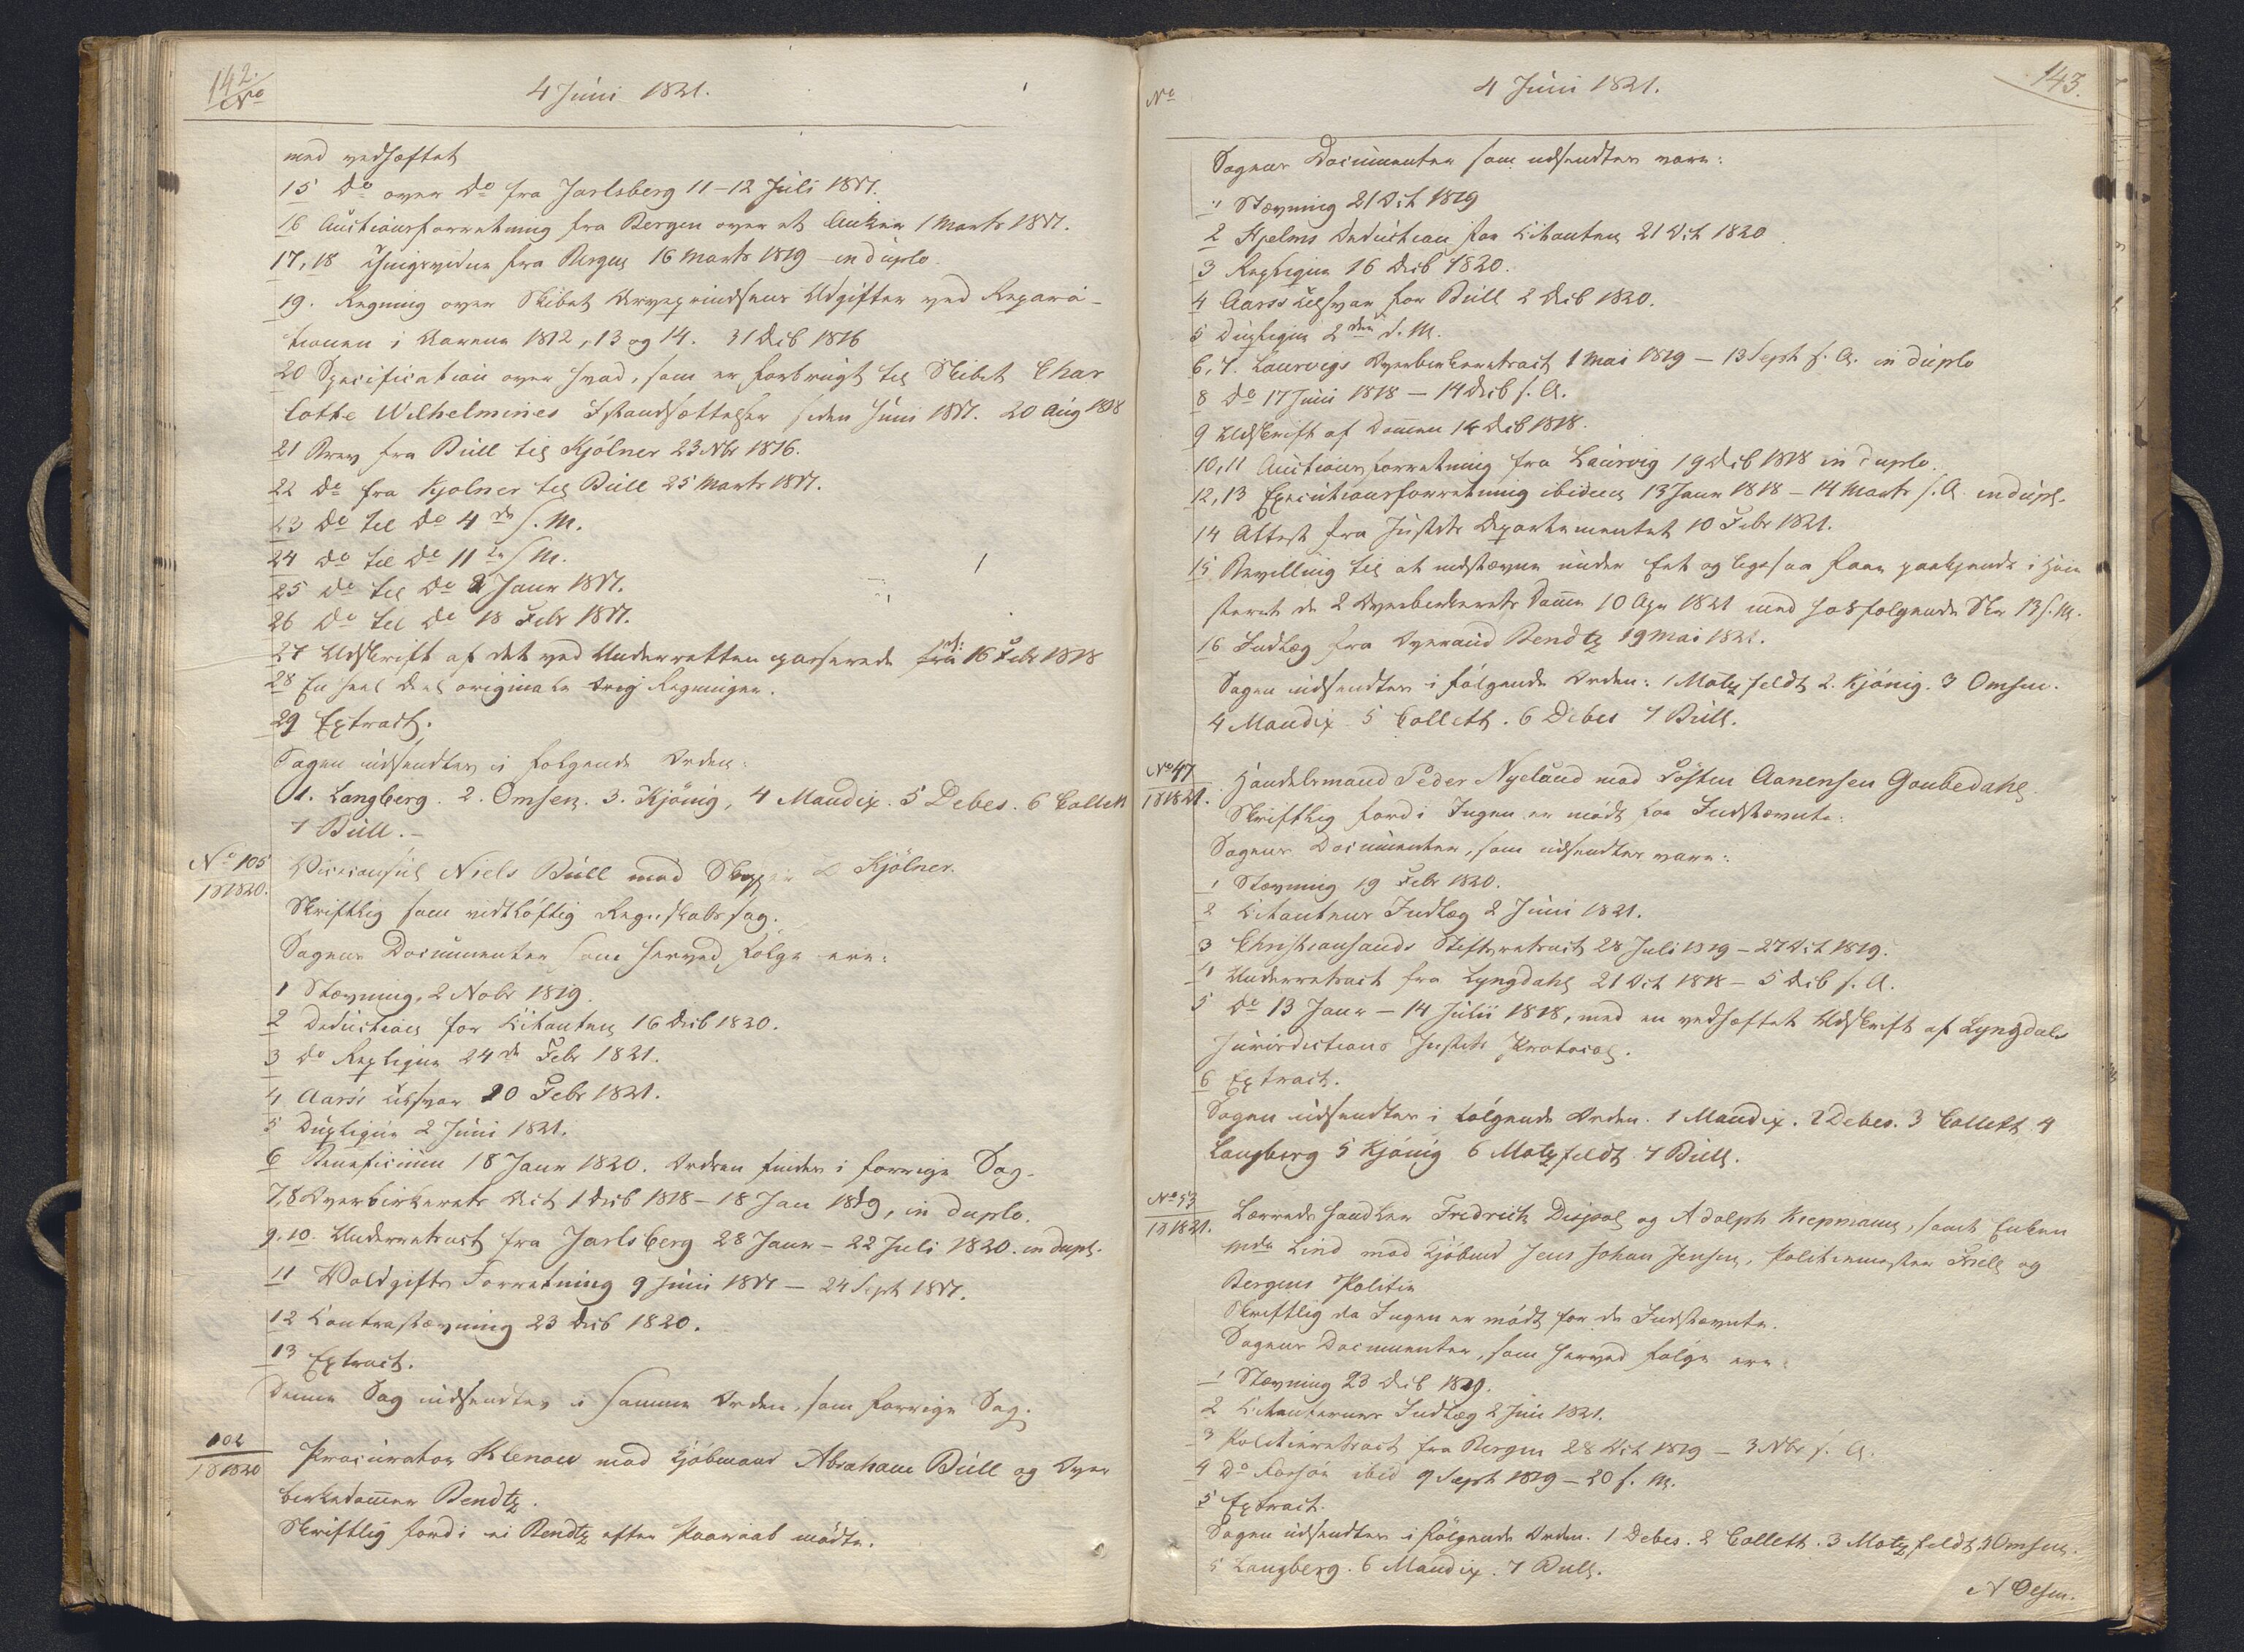 142.
No
4 Juni 1821.
med vedhæftet
15 Do over Do fra Jarlsberg 11-12 Juli 1817.
16 Auctionsforretning fra Bergen over et Anker 1 Marts 1817.
17, 18 Thingsvidne fra Bergen 16 Marts 1819 in duplo.
19. Regning over Skibet Arveprindsens Udgifter ved Repara-
tionen i Aarene 1812, 13 og 14. 31 Decb 1816
20 Specification over hvad, som er forbrugt til Skibet Char
lotte Wilhelmines Istandsættelse siden Juni 1817. 20 Aug 1818
21 Brev fra Bull til Kjölner 23 Nbr 1816.
22 Do fra Kjølner til Bull 25 Marts 1817.
23 Do til Do 4de s. M.
24 Do til Do 11te s. M.
25 Do til Do 2 Janr 1817.
26 Do til Do 18 Febr 1817.
27 Udskrift af det ved Underretten passerede fra 16 Febr 1818
28 En heel Deel originale Regninger.
29 Extract.
Sagen udsendtes i følgende Orden:
1. Langberg. 2. Omsen. 3. Kjönig, 4 Maudix. 5 Debes. 6 Collett
7 Bull.-
No 105
18 1820.
Viceconsul Niels Bull mod Skipper Kjölner.
Skriftlig som vidtløftig Regnskabssag.
Sagens Documenter som herved følge ere:
1 Stævning, 2 Nobr 1819.
2 Deduction for Citanten 16 Decb 1820.
3 Do Replique 24de Febr 1821.
4 Aars's Tilsvar 20 Febr 1821.
5 Duplique 2 Juni 1821.
6 Beneficium 18 Janr 1820. Ordren findes i forrige Sag.
7, 8 Overbirkerets Act 1 Decb 1818 - 18 Jan 1819, in duplo.
9. 10. Underretsact fra Jarlsberg 28 Janr - 22 Juli 1820. in dupl.
11 Voldgifts Forretning 9 Juni 1817 - 24 Sept 1817.
12 Contrastævning 23 Decb 1820.
13 Extract.
Denne Sag udsendtes i samme Orden, som forrige Sag.
102
18 1820
Procurator Klenow mod Kjöbmand Abraham Bull og Over
birkedommer Bendtz.
Skriftlig fordi ei Bendtz efter Paaraab mødte.
143.
No
4 Juni 1821.
Sagens Documenter som udsendtes vare:
1 Stævning 21 Oct 1819
2 Hjelms Deduction for Citanten 21 Oct 1820
3 Replique 16 Decb 1820.
4 Aars's Tilsvar for Bull 2 Decb 1820.
5 Duplique 2den d. M.
6, 7. Laurvigs Overbirkeretsact 1 Mai 1819 - 13 Sept s. A. in duplo
8 Do 17 Juni 1818 - 14 Decb s. A.
9 Udskrift af Dommen 14 Decb 1818.
10, 11 Auctionsforretning fra Laurvig 19 Decb 1818 in duplo.
12, 13 Executionsforretning ibidem 13 Janr 1818 - 14 Marts s. A. in dupl.
14 Attest fra Justits Departementet 10 Febr 1821.
15 Bevilling til at indstævne under Eet og ligesaa faae paakjendt i Høie
steret de 2 Overbirkerets Domme 10 Apr 1821 med hosfølgende Skr 13 s. M.
16 Indlæg fra Overaud Bendtz 19 Mai 1821.
Sagen udsendtes i følgende Orden: 1 Motzfeldt 2. Kjönig. 3 Omsen.
4 Maudix 5 Collett. 6 Debes 7 Bull.
No 47
18 1821.
Handelsmand Peder Nyeland mod Gösten Aanensen Goubedahl
Skriftlig fordi Ingen er mødt for Indstævnte:
Sagens Documenter, som udsendtes vare:
1 Stævning 19 Febr 1820.
2 Citantens Indlæg 2 Juni 1821.
3 Christiansands Stiftsretsact 28 Juli 1819 - 27 Oct 1819.
4 Underretsact fra Lyngdahl 21 Oct 1818 - 5 Decb s. A.
5 Do 13 Janr - 14 Julii 1818, med en vedhæftet Udskrift af Lyngdals
Jurisdictions Justits Protocol.
6 Extract.
Sagen udsendtes i følgende Orden. 1 Maudix. 2 Debes. 3 Collett 4
Langberg 5 Kjönig 6 Motzfeldt 7 Bull.
No 53
18 1821.
Lærredshandler Fredrich Diepol og Adolph Kiepmann, samt Enken
Md Lind mod Kjöbmd Jens Johan Jensen, Politiemester Friele og
Bergens Politie
Skriftlig da Ingen er mødt for de Indstævnte.
Sagens Documenter, som herved følge ere:
1 Stævning 23 Decb 1819.
2 Citanternes Indlæg 2 Juni 1821.
3 Politieretsact fra Bergen 28 Oct 1819 - 3 Nbr s. A.
4 Do Forhör ibid 9 Sept 1819 - 20 s. M.
5 Extract.
Sagen udsendtes i følgende Orden. 1 Debes. 2 Collett. 3 Motzfeldt, 4 Omsen.
5 Langberg. 6 Maudix. 7 Bull.
N Olsen.